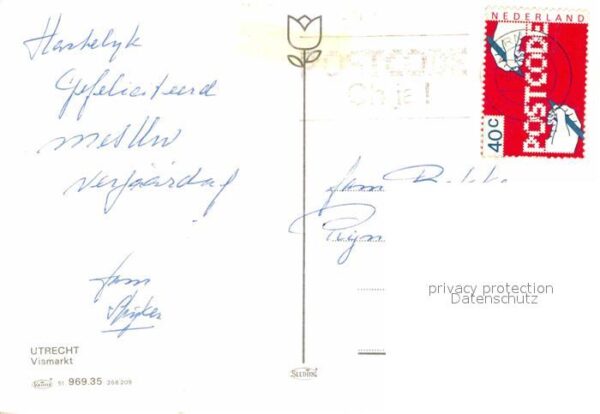 Hartelijk
Gefeliciteerd
met Uw
verjaardag
fam
UTRECHT
Vismarkt
51 969.35 268 209
SLEDING
NEDERLAND
POSTCODE
40 c
POSTCODE
Oh ja!
fam
privacy protection
Datenschutz